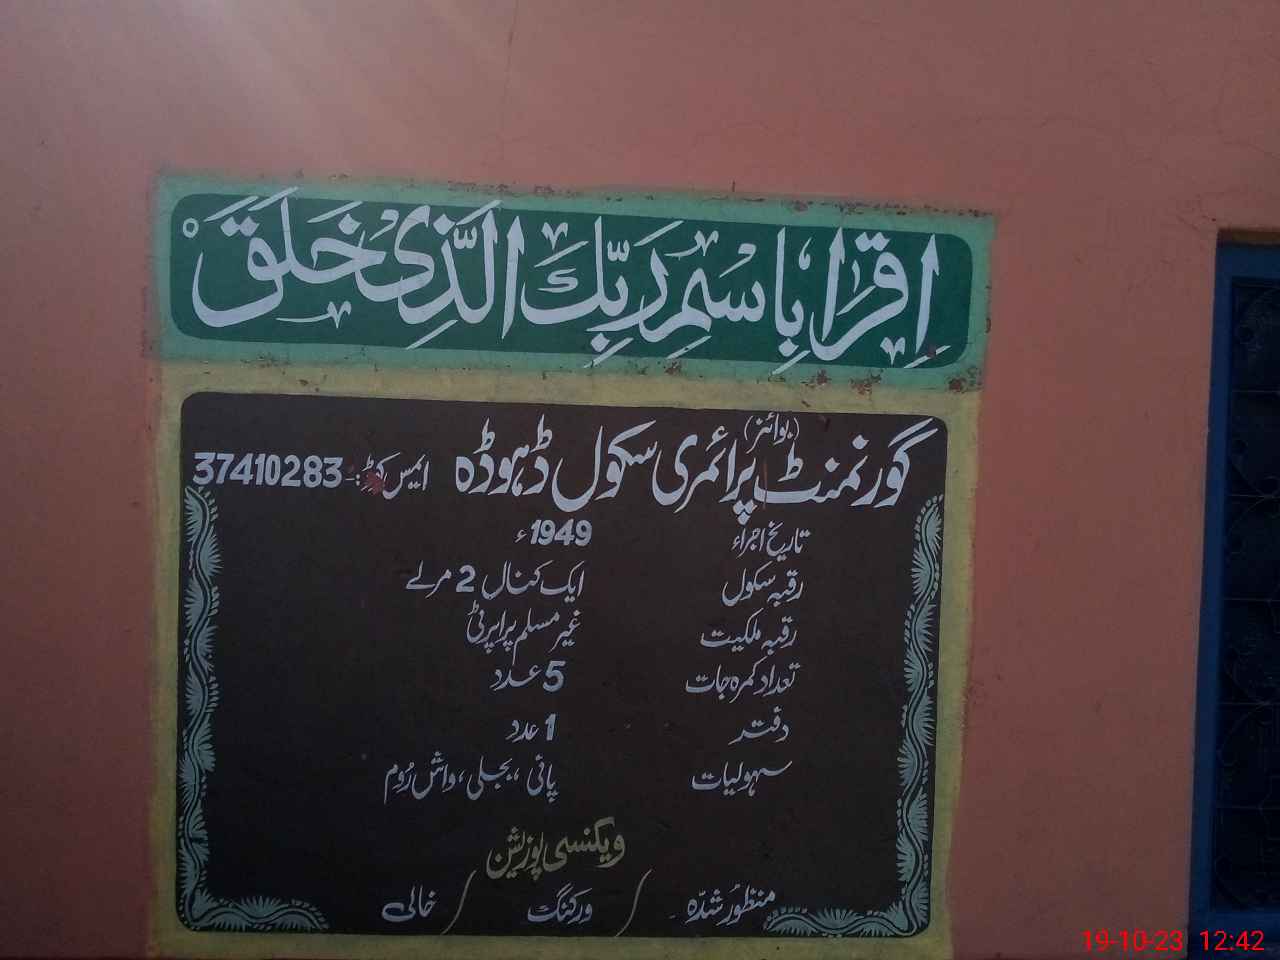 اِقْرَاْ بِاسْمِ رَبِّكَ الَّذِىْ خَلَقَ ْ
(بوائز)
گورنمنٹ پرائمری سکول ڈہوڈہ ایمس کوڈ:- 37410283
تاریخ اجراء 1949ء
رقبہ سکول ایک کنال 2 مرلے
رقبہ ملکیت غیر مسلم پراپرٹی
تعداد کمرہ جات 5 عدد
دفتر 1 عدد
سہولیات پانی ،بجلی، واش رُوم
ویکنسی پوزیشن
منظور شدّہ / ورکنگ / خالی
19-10-23 12:42